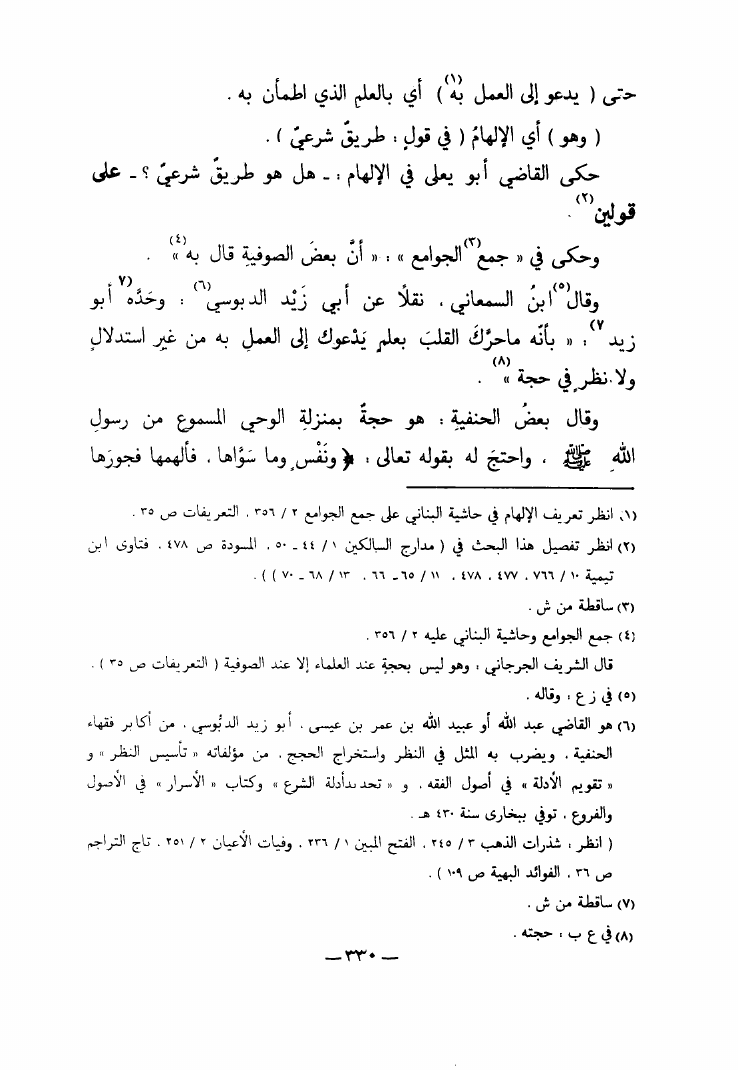 حتى ( يدعو إلى العمل به(١) ) أي بالعلم الذي اطمأن به .
( وهو ) أي الإلهامُ ( في قولٍ : طريقٌ شرعيّ ) .
حكى القاضي أبو يعلى في الإلهام : ـ هل هو طريقٌ شرعيّ ؟ ـ على
قولين(٢) .
وحكى في « جمع(٣) الجوامع » : « أنَّ بعضَ الصوفيةِ قال به(٤) » .
وقال(٥) ابنُ السمعاني ، نقلًا عن أبي زَيْد الدبوسي(٦) : وحَدَّه(٧) أبو
زيد(٧) : « بأنّه ماحرَّكَ القلبَ بعلمٍ يَدْعوك إلى العملِ به من غيرِ استدلالٍ
ولا نظرٍ في حجة(٨) » .
وقال بعضُ الحنفيةِ : هو حجةٌ بمنزلةِ الوحي المسموعِ من رسولِ
اللهِ ﷺ ، واحتجَ له بقوله تعالى : ﴿ ونَفْسٍ وما سَوَّاها ، فألهمها فجورَها
(١) انظر تعريف الإلهام في حاشية البناني على جمع الجوامع ٢ / ٣٥٦ ، التعريفات ص ٣٥ .
(٢) انظر تفصيل هذا البحث في ( مدارج السالكين ١ / ٤٤ ـ ٥٠ ، المسودة ص ٤٧٨ ، فتاوى ابن
تيمية ١٠ / ٧٦٦ ، ٤٧٧ ، ٤٧٨ ، ١١ / ٦٥ ـ ٦٦ ، ١٣ / ٦٨ ـ ٧٠ ) ) .
(٣) ساقطة من ش .
(٤) جمع الجوامع وحاشية البناني عليه ٢ / ٣٥٦ .
قال الشريف الجرجاني : وهو ليس بحجةٍ عند العلماء إلا عند الصوفية ( التعريفات ص ٣٥ ) .
(٥) في ز ع : وقاله .
(٦) هو القاضي عبد الله أو عبيد الله بن عمر بن عيسى ، أبو زيد الدبُوسي ، من أكابر فقهاء
الحنفية ، ويضرب به المثل في النظر واستخراج الحجج ، من مؤلفاته « تأسيس النظر » و
« تقويم الأدلة » في أصول الفقه ، و « تحديدأدلة الشرع » وكتاب « الأسرار » في الأصول
والفروع ، توفي ببخارى سنة ٤٣٠ هـ .
( انظر : شذرات الذهب ٣ / ٢٤٥ ، الفتح المبين ١ / ٢٣٦ ، وفيات الأعيان ٢ / ٢٥١ ، تاج التراجم
ص ٣٦ ، الفوائد البهية ص ١٠٩ ) .
(٧) ساقطة من ش .
(٨) في ع ب : حجته .
— ٣٣٠ —